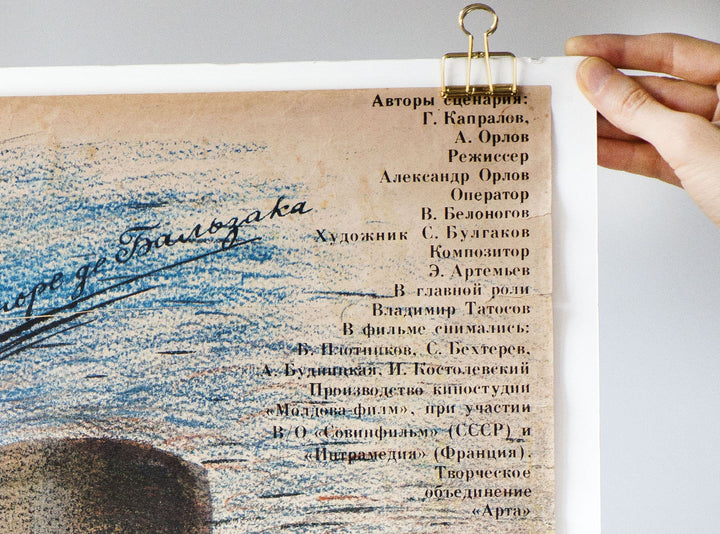 Авторы сценария:
Г. Капралов,
А. Орлов
Режиссер
Александр Орлов
Оператор
В. Белоногов
Художник С. Булгаков
Композитор
Э. Артемьев
В главной роли
Владимир Татосов
В фильме снимались:
Б. Плотников, С. Бехтерев,
А. Будницкая, И. Костолевский
Производство киностудии
«Молдова-филм», при участии
В/О «Совинфильм» (СССР) и
«Интрамедия» (Франция).
Творческое
объединение
«Арта»
де Бальзака